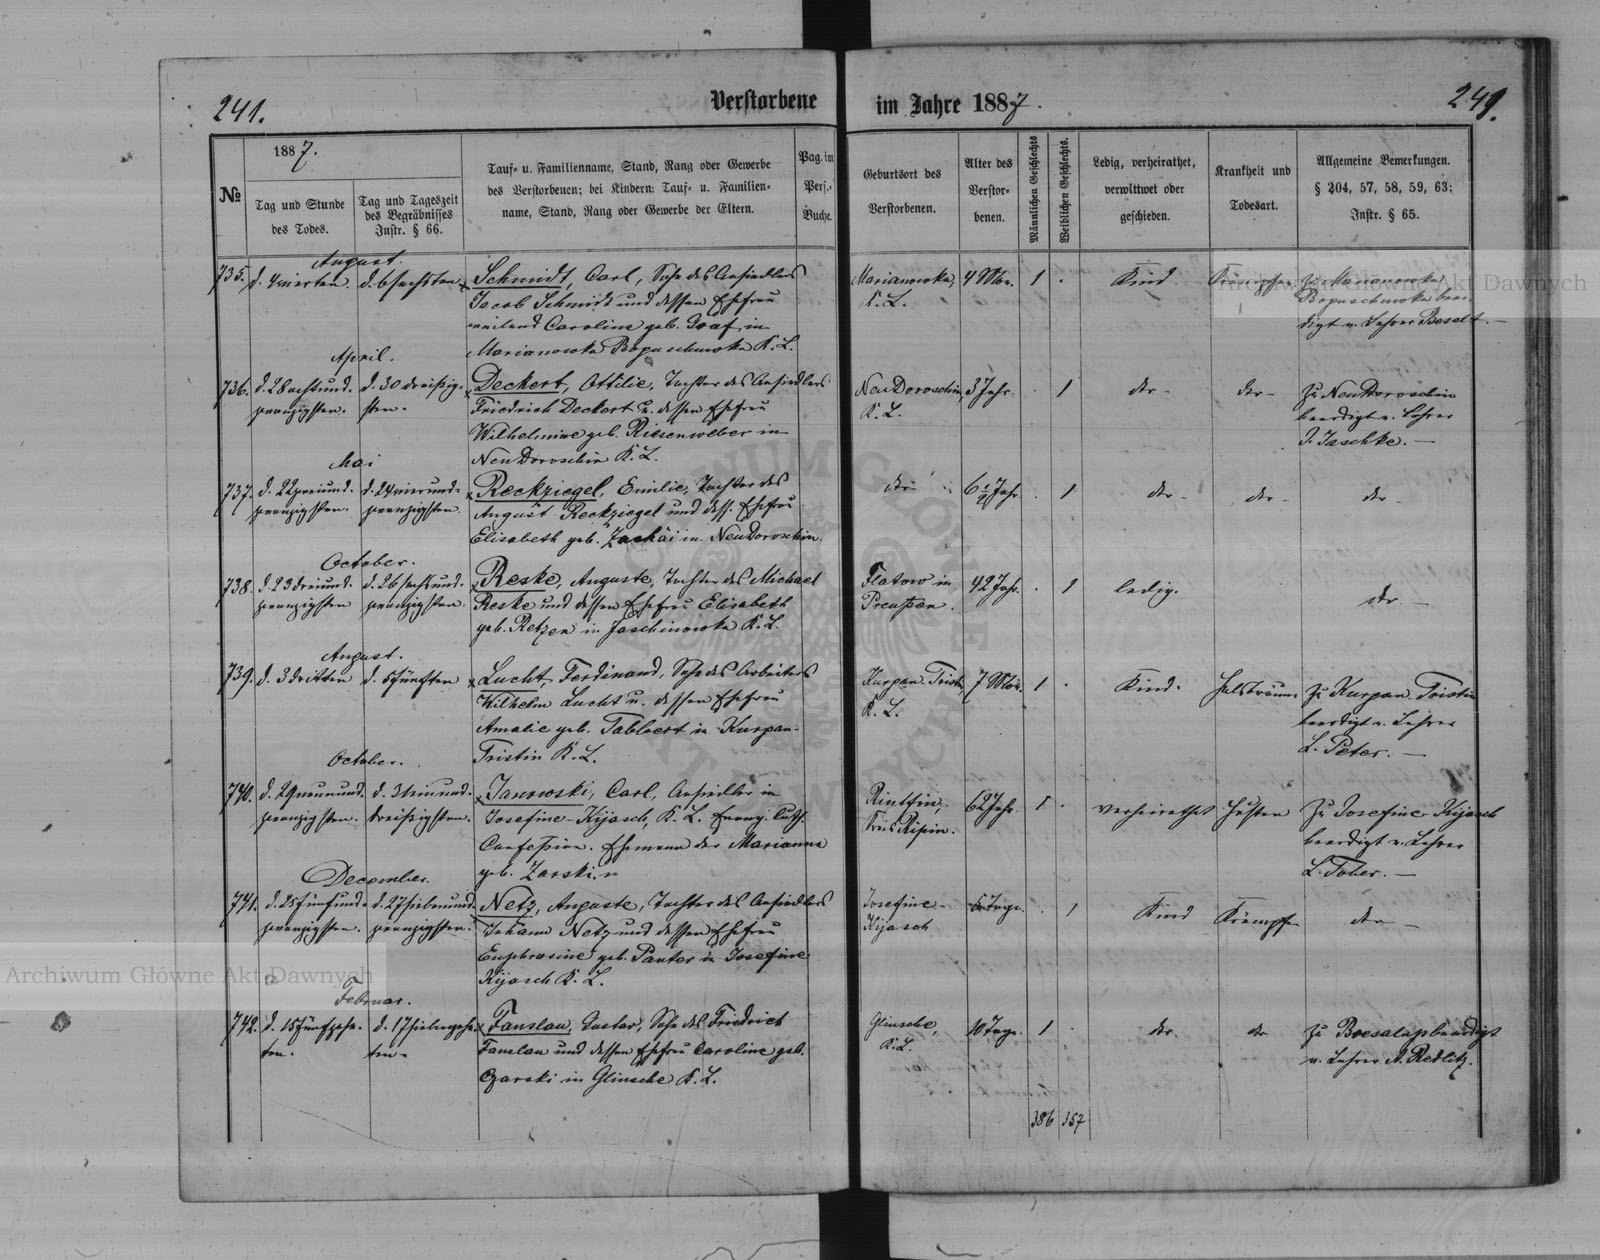 241.
Verstorbene
im Jahre 1887.
241.
№
1887.
Tag und Stunde
des Todes.
Tag und Tageszeit
des Begräbnisses
Instr. § 66.
Tauf- u. Familienname, Stand, Rang oder Gewerbe
des Verstorbenen; bei Kindern: Tauf- u. Familien-
name, Stand, Rang oder Gewerbe der Eltern.
Pag. im
Pers.-
Buche.
Geburtsort des
Verstorbenen.
Alter des
Verstor-
benen.
Männlichen Geschlechts
Weiblichen Geschlechts.
Ledig, verheirathet,
verwittwet oder
geschieden.
Krankheit und
Todesart.
Allgemeine Bemerkungen.
§ 204, 57, 58, 59, 63;
Instr. § 65.
August.
735.
d. 4 vierten
d. 6 sechsten
Schmidt, Carl, Sohn des Ansiedlers
Jacob Schmidt und dessen Ehefrau
weiland Caroline geb. Graf in
Marianowka Bopuschnoka K. L.
Marianowka
K. L.
4 Mon.
1
Kind
Krämpfe
zu Marianowka
Bopuschnoka beer-
digt v. Lehrer Beselt.
April.
736.
d. 28 achtund-
zwanzigsten.
d. 30 dreißig-
sten.
Deckert, Ottilie, Tochter des Ansiedlers
Friedrich Deckert u. dessen Ehefrau
Wilhelmine geb. Riesenweber in
Neu Doroschin K. L.
Neu Doroschin,
K. L.
3 Jahr.
1
dto
dto
zu Neu Doroschin
beerdigt v. Lehrer
J. Jaschke.
Mai
737.
d. 22 zweiund-
zwanzigsten.
d. 24 vierund-
zwanzigsten.
Reckziegel, Emilie, Tochter des
August Reckziegel und dess. Ehefrau
Elisabeth geb. Zachäi in Neu Doroschin.
dto
6 1/2 Jahr
1
dto
dto
dto
October.
738.
d. 23 dreiund-
zwanzigsten
d. 26 sechsund-
zwanzigsten.
Reske, Auguste, Tochter des Michael
Reske und dessen Ehefrau Elisabeth
geb. Retzen in Jaschinowka K. L.
Flatow in
Preußen.
42 Jahr.
1
ledig.
dto
August.
739.
d. 3 dritten
d. 5 fünften
Lucht, Ferdinand, Sohn des Arbeiters
Wilhelm Lucht u. dessen Ehefrau
Amalie geb. Tabbert in Kurpan-
Tristin K. L.
Kurpan Tristin
K. L.
7 Mon.
1
Kind.
Halsbräune
zu Kurpan Tristin
beerdigt v. Lehrer
L. Peter.
October.
740.
d. 29 neunund-
zwanzigsten.
d. 31 einund-
dreißigsten.
Janowski, Carl, Ansiedler in
Josefine-Kijasch, K. L. Evang. Luth.
Confession. Ehemann der Marianna
geb. Zarski.
Kreis Ripin.
62 Jahr.
1
verheirathet
Husten
zu Josefine Kijasch
beerdigt v. Lehrer
L. Tober.
December.
741.
d. 25 fünfund-
zwanzigsten.
d. 27 siebenund-
zwanzigsten.
Netz, Auguste, Tochter des Ansiedlers
Johann Netz und dessen Ehefrau
Euphrosine geb. Panter in Josefine
Kijasch K. L.
Josefine-
Kijasch
Tage.
1
Kind
Krämpfe
dto
Februar.
742.
d. 15 fünfzehn-
ten.
d. 17 siebenzehn-
ten.
Fanslau, Gustav, Sohn des Friedrich
Fanslau und dessen Ehefrau Caroline geb.
Czarski in Glinsche K. L.
Glinsche,
K. L.
10 Tage.
1
dto
dto
zu beerdigt
v. Lehrer A. Redlitz.
386
357
Archiwum Główne Akt Dawnych
Archiwum Główne Akt Dawnych